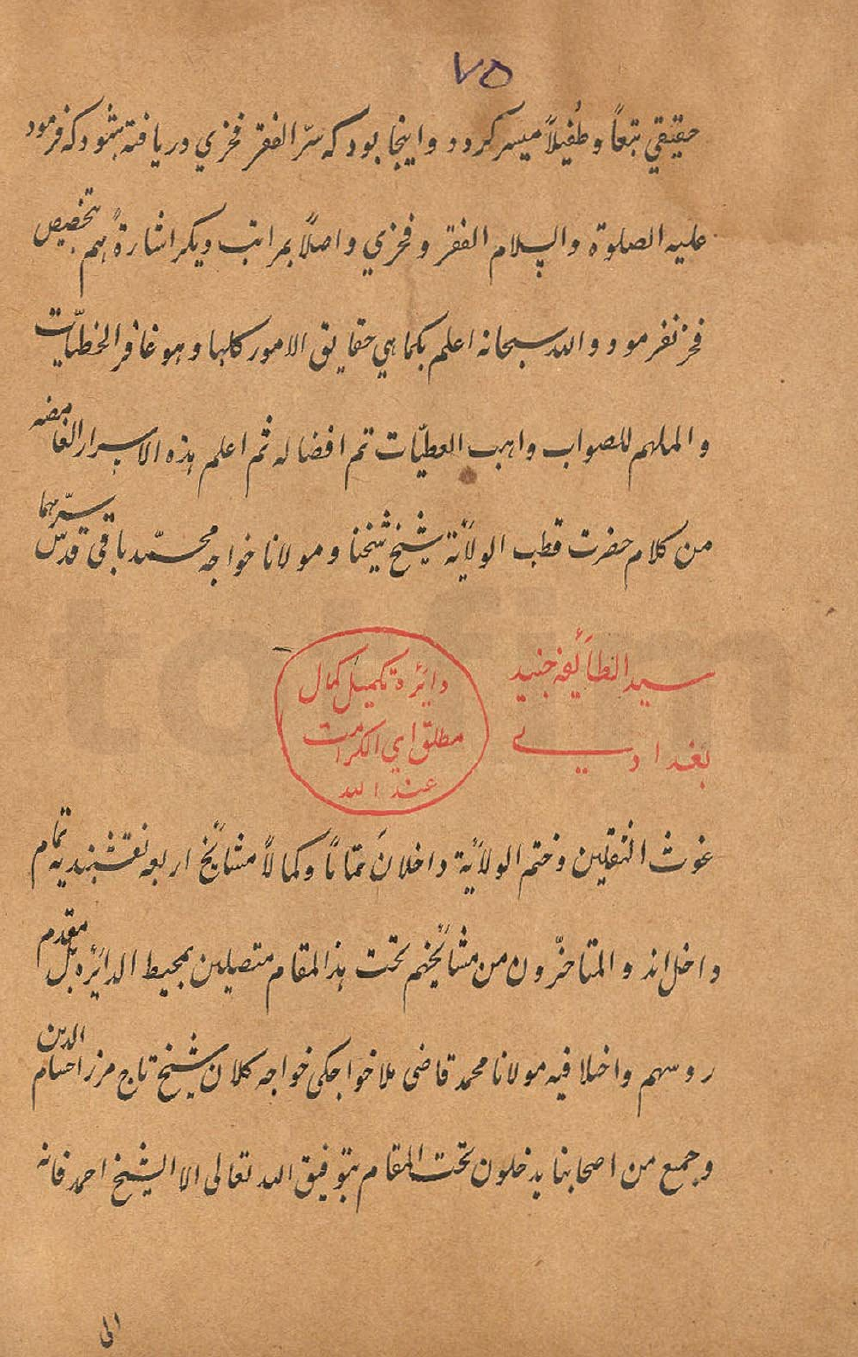 ٧٥
حقيقي تبعاً وطفيلاً ميسر كردد واينجا بود كه سرّ الفقر فخري دريافته بشود كه فرمود
عليه الصلوة والسلام الفقر وفخري واصلاً بمراتب ديكر اشارة هم بتخصيص
فخر نفرمود والله سبحانه اعلم بكما هي حقايق الامور كلها وهو غافر الخطيّات
والملهم للصواب واهب العطيّات تم افضاله ثم اعلم هذه الاسرار الغامضه
من كلام حضرت قطب الولاية شيخ شيخنا ومولانا خواجه محمّد باقي قدّس سرّهما
سيد الطائفه جنيد
بغدادي
دائرة تكميل كمال
مطلق اي الكرامت
عند الله
غوث الثقلين وختم الولاية داخلان تماماً وكمالاً مشائخ اربعه نقشبنديه تمام
داخل اند والمتاخّرون من مشائخهم تحت هذا المقام متصلين بمحيط الدائره بل مقدم
روسهم داخلا فيه مولانا محمد قاضى ملا خواجكى خواجه كلان شيخ تاج مرزا حسام الدين
وجمع من اصحابنا يدخلون تحت المقام بتوفيق الله تعالى الا الشيخ احمد فانه
الى
totfim